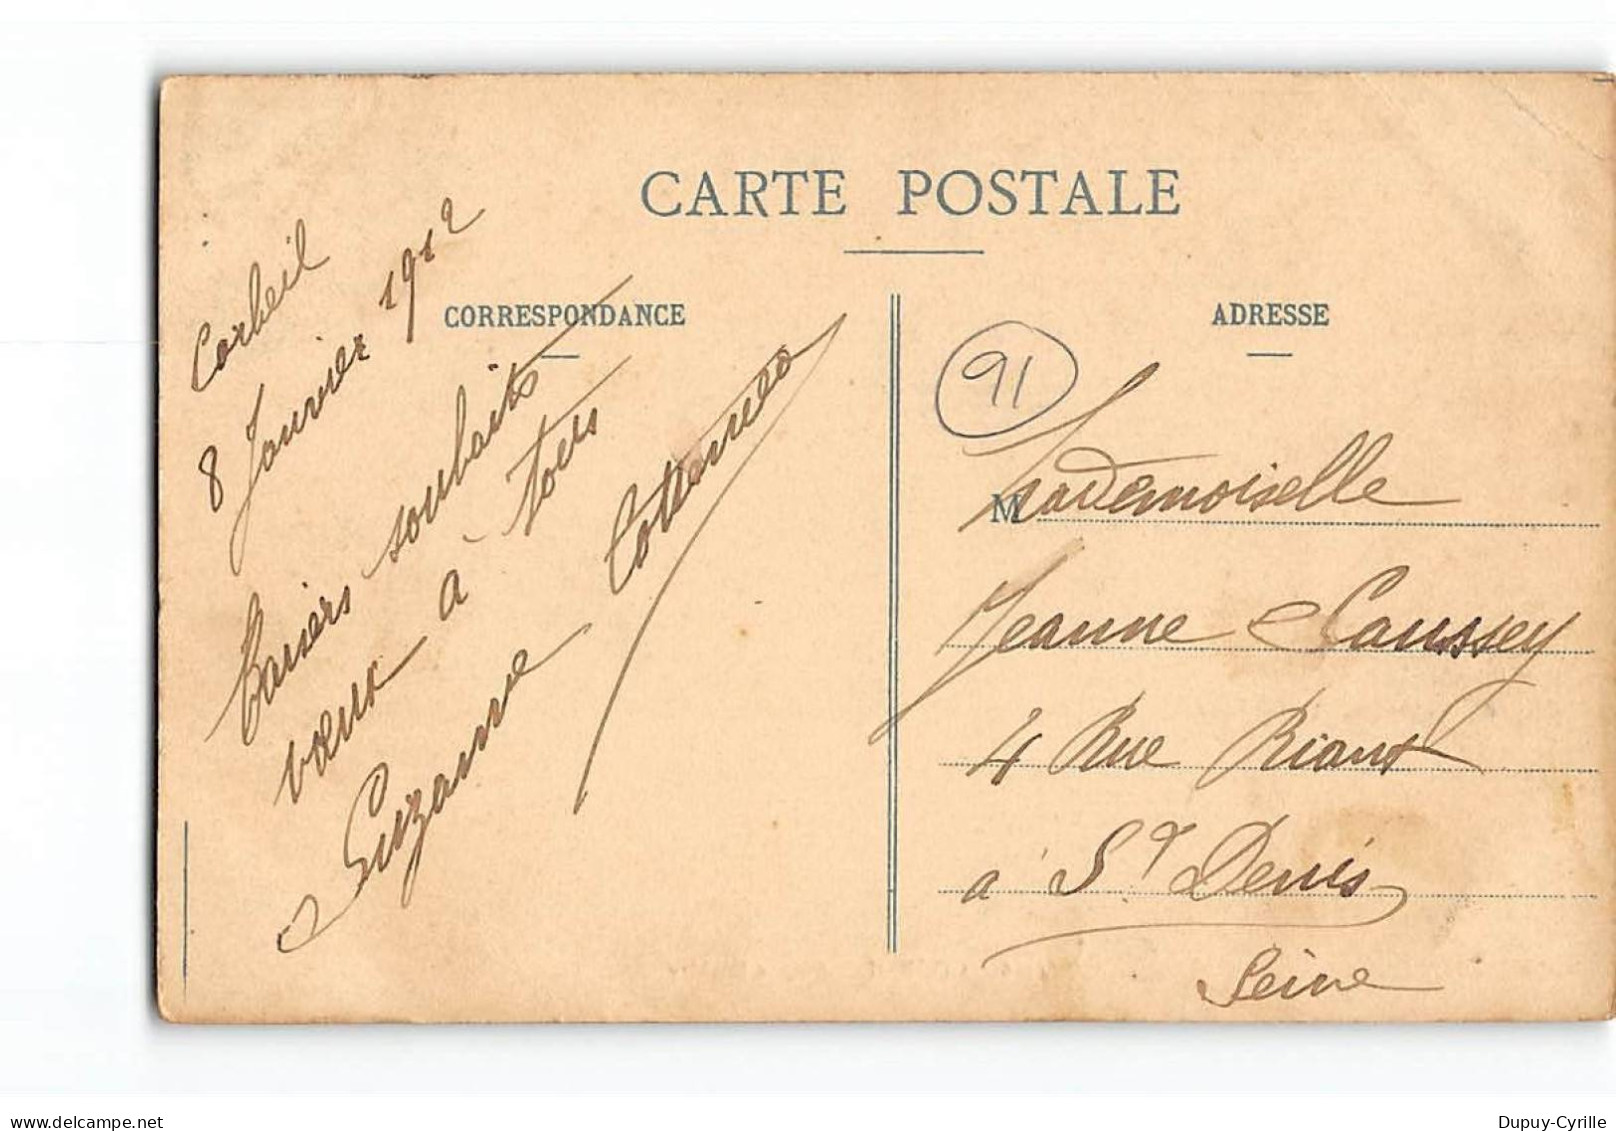 CARTE POSTALE
CORRESPONDANCE
Corbeil
8 Janvier 1912
Baisers souhaits
vœux à tous
Suzanne
ADRESSE
91
M
Mademoiselle
Jeanne Caussey
4 Rue Riant
à St Denis
Seine
delcampe.net
Dupuy-Cyrille